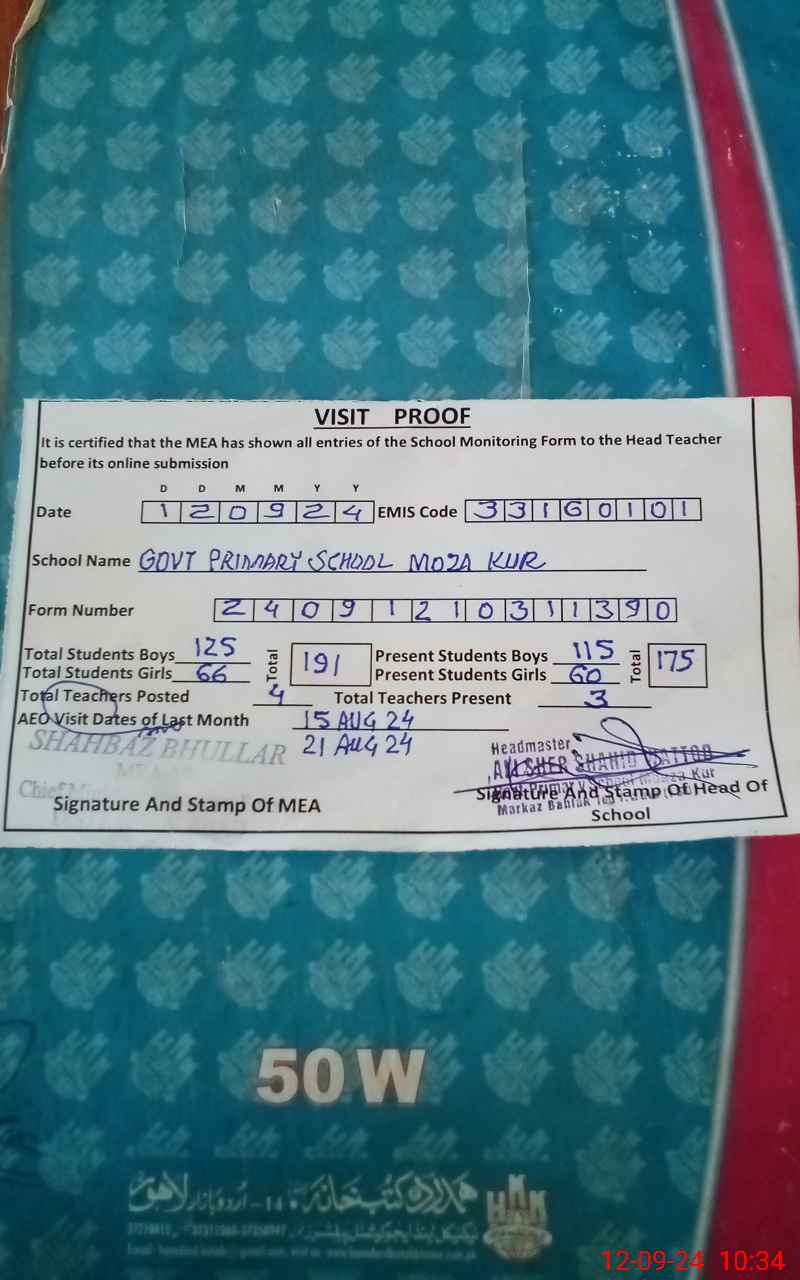 VISIT PROOF
It is certified that the MEA has shown all entries of the School Monitoring Form to the Head Teacher
before its online submission
D D M M Y Y
Date 1 2 0 9 2 4 EMIS Code 3 3 1 6 0 1 0 1
School Name GOVT PRIMARY SCHOOL MOZA KUR
Form Number 2 4 0 9 1 2 1 0 3 1 1 3 9 0
Total Students Boys 125 Total 191 Present Students Boys 115 Total 175
Total Students Girls 66 Present Students Girls 60
Total Teachers Posted 4 Total Teachers Present 3
AEO Visit Dates of Last Month 15 AUG 24
21 AUG 24
SHAHBAZ BHULLAR
MEA
Chief
Signature And Stamp Of MEA
Headmaster
SHER SHAHID
Govt Primary School Moaza Kur
Markaz
Signature And Stamp Of Head Of
School
50 W
ہمدرد کتب خانہ • 14-اردو بازار لاہور
HKK
12-09-24 10:34